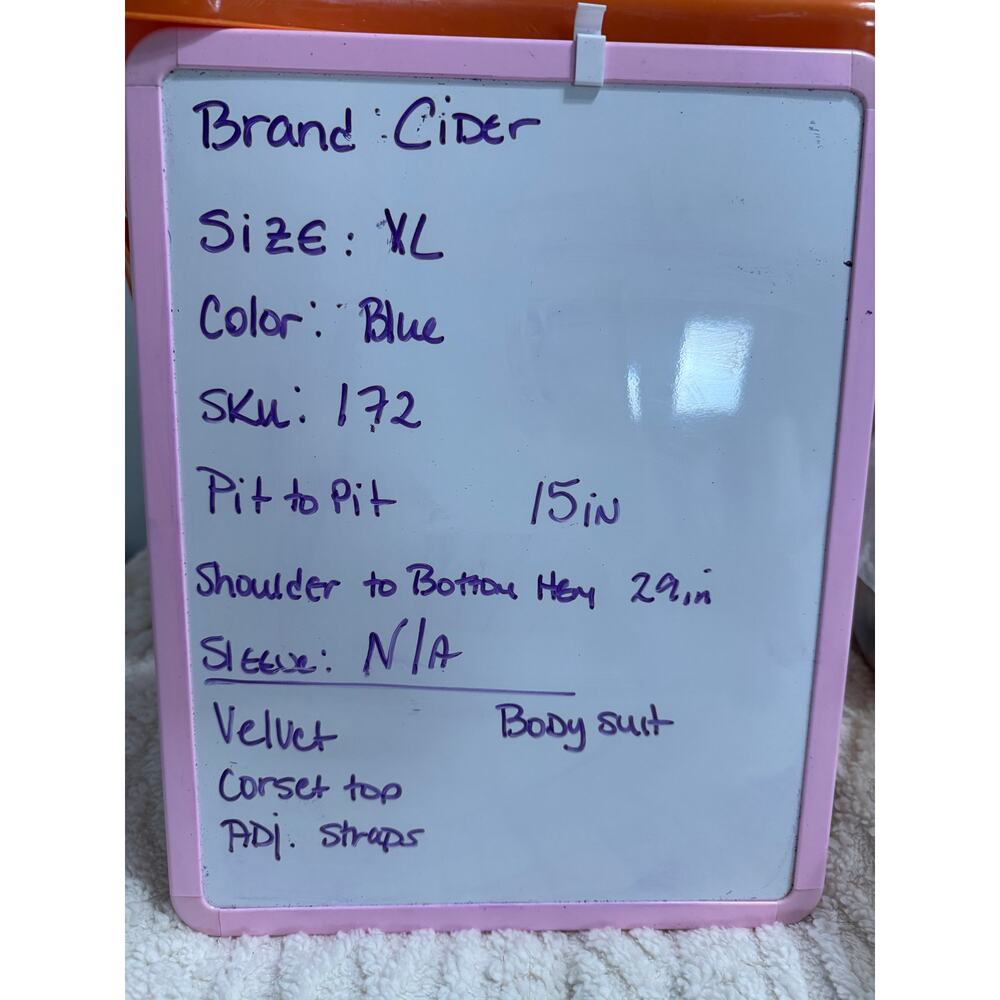 Brand: Cider
Size: XL
Color: Blue
SKU: 172
Pit to Pit 15in
Shoulder to Bottom Hem 29in
Sleeve: N/A
Velvet Body suit
Corset top
ADj. straps